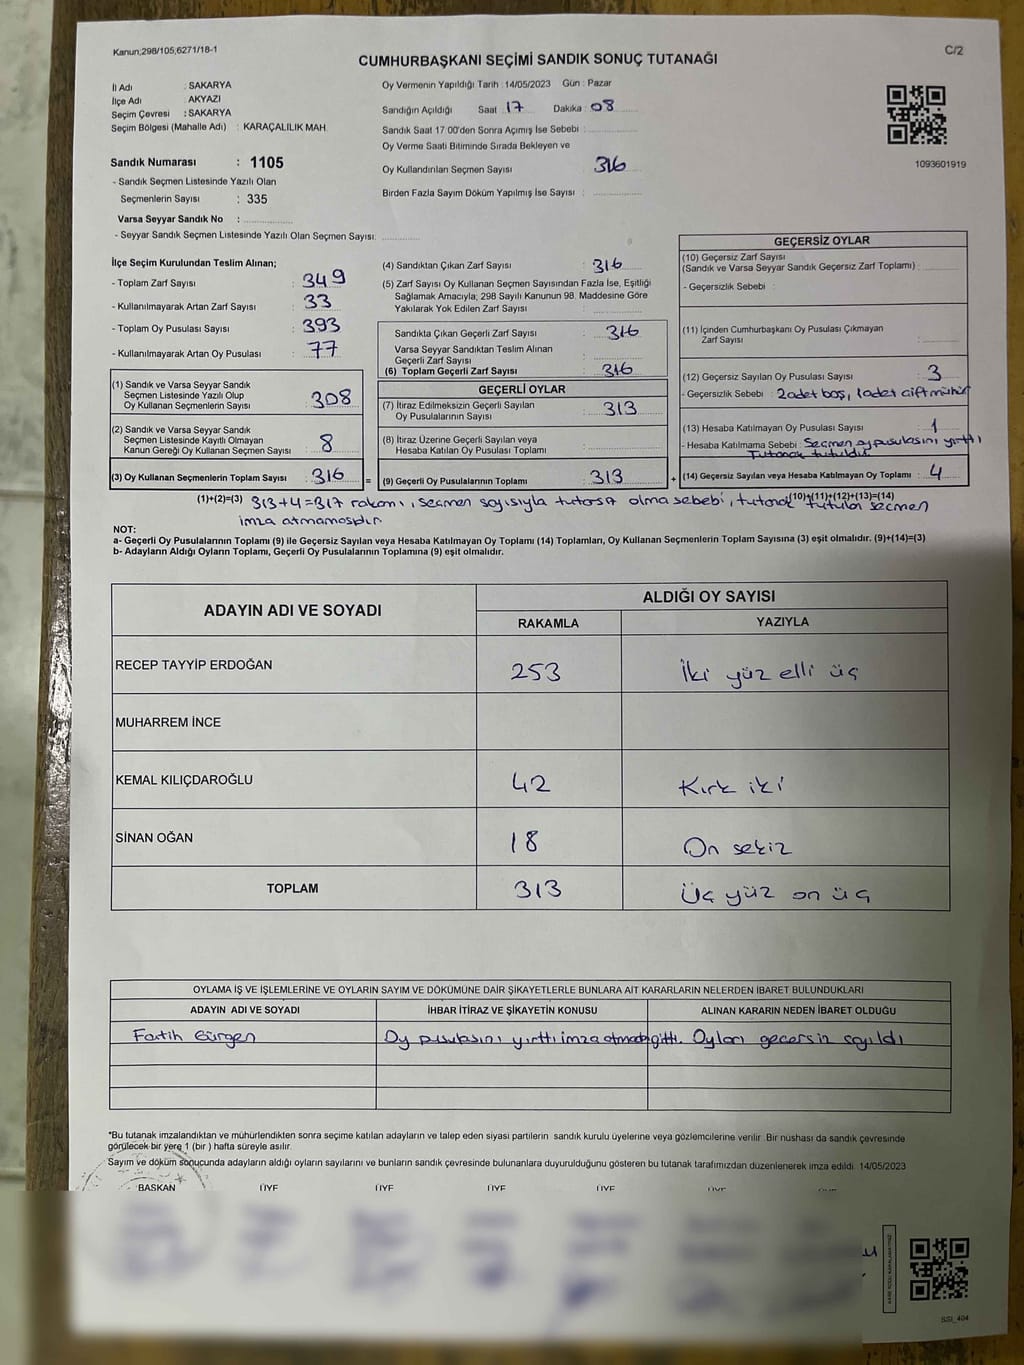 Kanun;298/105;6271/18-1
C/2
CUMHURBAŞKANI SEÇİMİ SANDIK SONUÇ TUTANAĞI
İl Adı : SAKARYA
İlçe Adı : AKYAZI
Seçim Çevresi : SAKARYA
Seçim Bölgesi (Mahalle Adı) : KARAÇALILIK MAH.
Sandık Numarası : 1105
- Sandık Seçmen Listesinde Yazılı Olan
Seçmenlerin Sayısı : 335
Varsa Seyyar Sandık No :
- Seyyar Sandık Seçmen Listesinde Yazılı Olan Seçmen Sayısı:
Oy Vermenin Yapıldığı Tarih : 14/05/2023 Gün : Pazar
Sandığın Açıldığı Saat 17 Dakika : 08
Sandık Saat 17:00'den Sonra Açımış İse Sebebi :
Oy Verme Saati Bitiminde Sırada Bekleyen ve
Oy Kullandırılan Seçmen Sayısı : 316
Birden Fazla Sayım Döküm Yapılmış İse Sayısı :
1093601919
İlçe Seçim Kurulundan Teslim Alınan;
- Toplam Zarf Sayısı : 349
- Kullanılmayarak Artan Zarf Sayısı : 33
- Toplam Oy Pusulası Sayısı : 393
- Kullanılmayarak Artan Oy Pusulası : 77
(1) Sandık ve Varsa Seyyar Sandık
Seçmen Listesinde Yazılı Olup
Oy Kullanan Seçmenlerin Sayısı : 308
(2) Sandık ve Varsa Seyyar Sandık
Seçmen Listesinde Kayıtlı Olmayan
Kanun Gereği Oy Kullanan Seçmen Sayısı : 8
(3) Oy Kullanan Seçmenlerin Toplam Sayısı : 316 =
(4) Sandıktan Çıkan Zarf Sayısı : 316
(5) Zarf Sayısı Oy Kullanan Seçmen Sayısından Fazla İse, Eşitliği
Sağlamak Amacıyla; 298 Sayılı Kanunun 98. Maddesine Göre
Yakılarak Yok Edilen Zarf Sayısı :
Sandıkta Çıkan Geçerli Zarf Sayısı : 316
Varsa Seyyar Sandıktan Teslim Alınan
Geçerli Zarf Sayısı :
(6) Toplam Geçerli Zarf Sayısı : 316
GEÇERLİ OYLAR
(7) İtiraz Edilmeksizin Geçerli Sayılan
Oy Pusulalarının Sayısı : 313
(8) İtiraz Üzerine Geçerli Sayılan veya
Hesaba Katılan Oy Pusulası Toplamı :
(9) Geçerli Oy Pusulalarının Toplamı : 313 +
GEÇERSİZ OYLAR
(10) Geçersiz Zarf Sayısı
(Sandık ve Varsa Seyyar Sandık Geçersiz Zarf Toplamı) :
- Geçersizlik Sebebi :
(11) İçinden Cumhurbaşkanı Oy Pusulası Çıkmayan
Zarf Sayısı :
(12) Geçersiz Sayılan Oy Pusulası Sayısı : 3
- Geçersizlik Sebebi : 2adet boş, 1adet çift mühür
(13) Hesaba Katılmayan Oy Pusulası Sayısı : 1
- Hesaba Katılmama Sebebi : Seçmen oy pusulasını yırttı
Tutanak tutuldu.
(14) Geçersiz Sayılan veya Hesaba Katılmayan Oy Toplamı : 4
(1)+(2)=(3)
(10)+(11)+(12)+(13)=(14)
313+4=317 rakamı, seçmen sayısıyla tutarsız olma sebebi, tutanak tutulan seçmen
imza atmamıştır
NOT:
a- Geçerli Oy Pusulalarının Toplamı (9) ile Geçersiz Sayılan veya Hesaba Katılmayan Oy Toplamı (14) Toplamları, Oy Kullanan Seçmenlerin Toplam Sayısına (3) eşit olmalıdır. (9)+(14)=(3)
b- Adayların Aldığı Oyların Toplamı, Geçerli Oy Pusulalarının Toplamına (9) eşit olmalıdır.
ADAYIN ADI VE SOYADI
ALDIĞI OY SAYISI
RAKAMLA YAZIYLA
RECEP TAYYİP ERDOĞAN 253 İki yüz elli üç
MUHARREM İNCE
KEMAL KILIÇDAROĞLU 42 Kırk iki
SİNAN OĞAN 18 On sekiz
TOPLAM 313 Üç yüz on üç
OYLAMA İŞ VE İŞLEMLERİNE VE OYLARIN SAYIM VE DÖKÜMÜNE DAİR ŞİKAYETLERLE BUNLARA AİT KARARLARIN NELERDEN İBARET BULUNDUKLARI
ADAYIN ADI VE SOYADI İHBAR İTİRAZ VE ŞİKAYETİN KONUSU ALINAN KARARIN NEDEN İBARET OLDUĞU
Fatih Gürgen Oy pusulasını yırttı imza atmadı gitti. Oyları geçersiz sayıldı
*Bu tutanak imzalandıktan ve mühürlendikten sonra seçime katılan adayların ve talep eden siyasi partilerin sandık kurulu üyelerine veya gözlemcilerine verilir. Bir nüshası da sandık çevresinde
görülecek bir yere 1 (bir ) hafta süreyle asılır.
Sayım ve döküm sonucunda adayların aldığı oyların sayılarını ve bunların sandık çevresinde bulunanlara duyurulduğunu gösteren bu tutanak tarafımızdan düzenlenerek imza edildi. 14/05/2023
BAŞKAN ÜYE ÜYE ÜYE ÜYE ÜYE
SSI_404